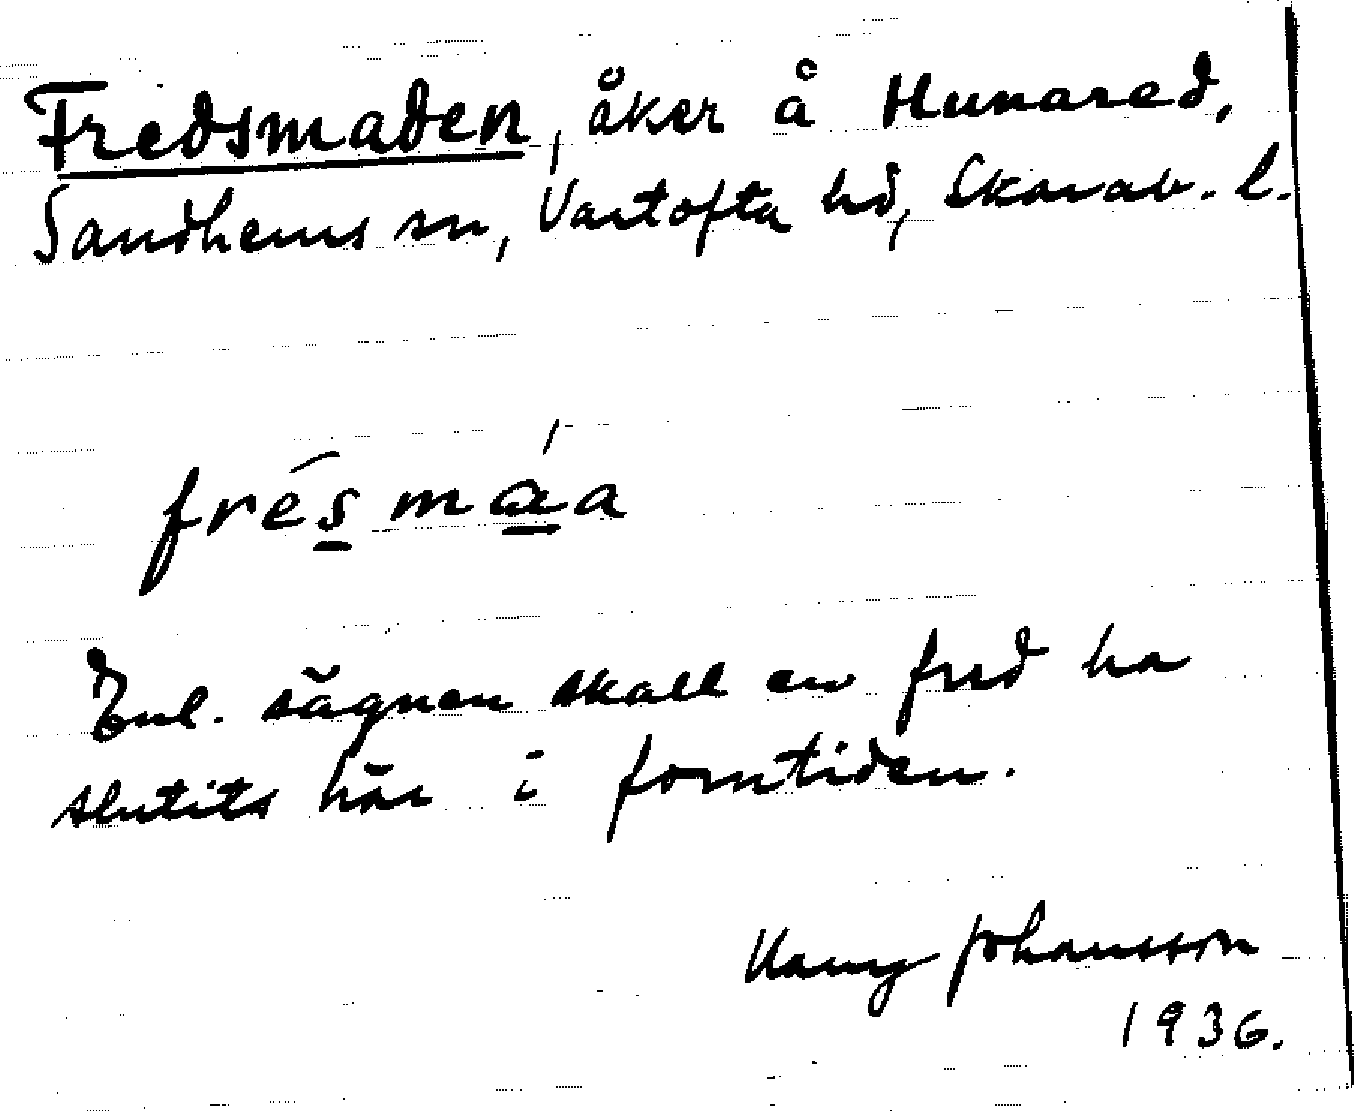 Fredsmaden, åker å Hunared,
Sandhems sn, Vartofta hd, Skarab. l.
frésmáa
Enl. sägnen skall en fred ha
slutits här i forntiden.
Johansson
1936.